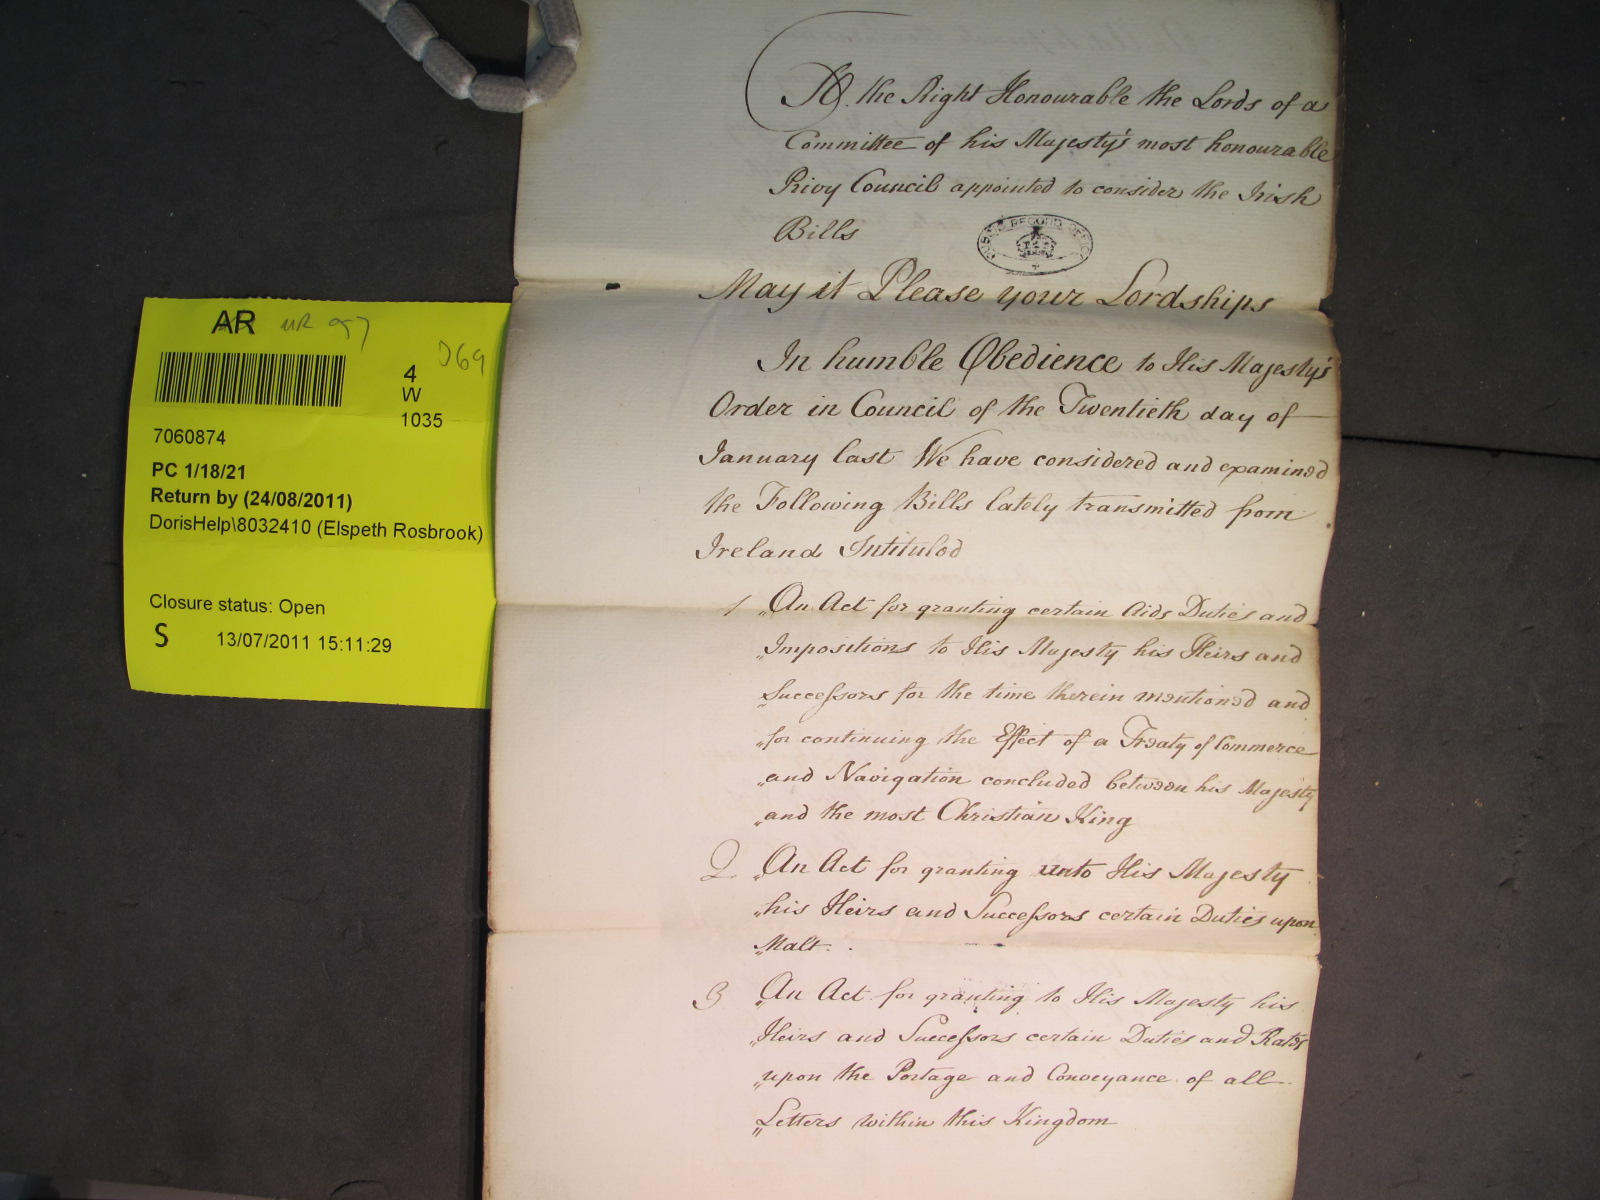 To the Right Honourable the Lords of a
Committee of his Majesty's most honourable
Privy Council appointed to consider the Irish
Bills
PUBLIC RECORD OFFICE
May it Please your Lordships
In humble Obedience to His Majesty's
Order in Council of the Twentieth day of
January last We have considered and examined
the Following Bills lately transmitted from
Ireland Intituled
1 „An Act for granting certain Aids Duties and
„Impositions to His Majesty his Heirs and
„Successors for the time therein mentioned and
„for continuing the Effect of a Treaty of Commerce
„and Navigation concluded between his Majesty
„and the most Christian King
2 „An Act for granting unto His Majesty
„his Heirs and Successors certain Duties upon
„Malt.
3 „An Act for granting to His Majesty his
„Heirs and Successors certain Duties and Rates
„upon the Portage and Conveyance of all
„Letters within this Kingdom
AR
4
W
1035
7060874
PC 1/18/21
Return by (24/08/2011)
DorisHelp\8032410 (Elspeth Rosbrook)
Closure status: Open
S 13/07/2011 15:11:29